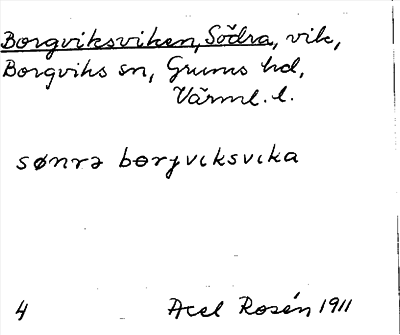 Borgviksviken, Södra, vik,
Borgviks sn, Grums hd,
Värml. l.
sønrə bɵrjvɩksvɩka
4 Axel Rosén 1911